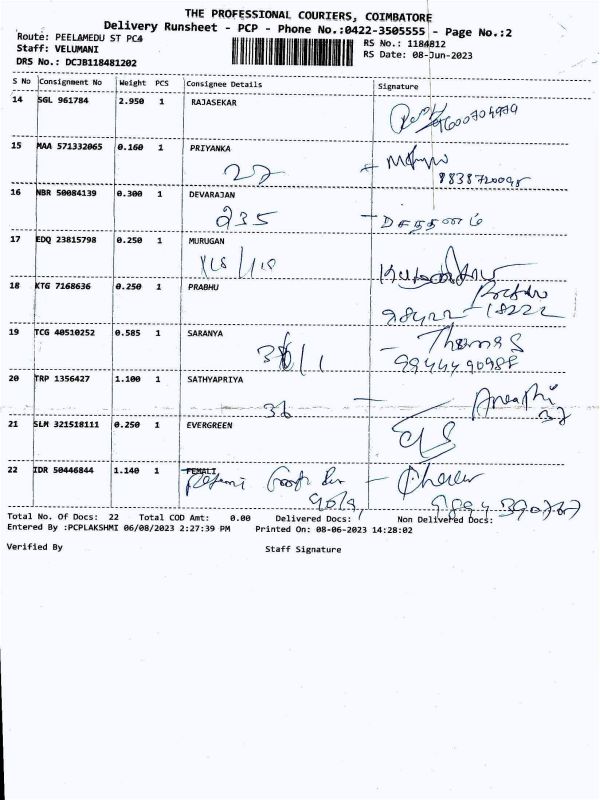 THE PROFESSIONAL COURIERS, COIMBATORE
Delivery Runsheet - PCP - Phone No.:0422-3505555 - Page No.:2
Route: PEELAMEDU ST PC4
RS No.: 1184812
Staff: VELUMANI
RS Date: 08-Jun-2023
DRS No.: DCJB118481202
S No Consignment No Weight PCS Consignee Details Signature
14 SGL 961784 2.950 1 RAJASEKAR
9600704979
15 MAA 571332065 0.160 1 PRIYANKA
27
9838720095
16 NBR 50084139 0.300 1 DEVARAJAN
235
17 EDQ 23815798 0.250 1 MURUGAN
118/118
18 KTG 7168636 0.250 1 PRABHU
98422 18222
19 TCG 40510252 0.585 1 SARANYA
Thomas
9944490988
20 TRP 1356427 1.100 1 SATHYAPRIYA
36
37
21 SLM 321518111 0.250 1 EVERGREEN
22 IDR 50446844 1.140 1 FEMALI
9894390767
Total No. Of Docs: 22 Total COD Amt: 0.00 Delivered Docs: Non Delivered Docs:
Entered By :PCPLAKSHMI 06/08/2023 2:27:39 PM Printed On: 08-06-2023 14:28:02
Verified By Staff Signature